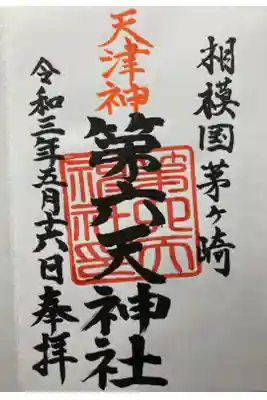 相模国茅ヶ崎
天津神
第六天神社
第六天神社印
令和三年五月十六日奉拝